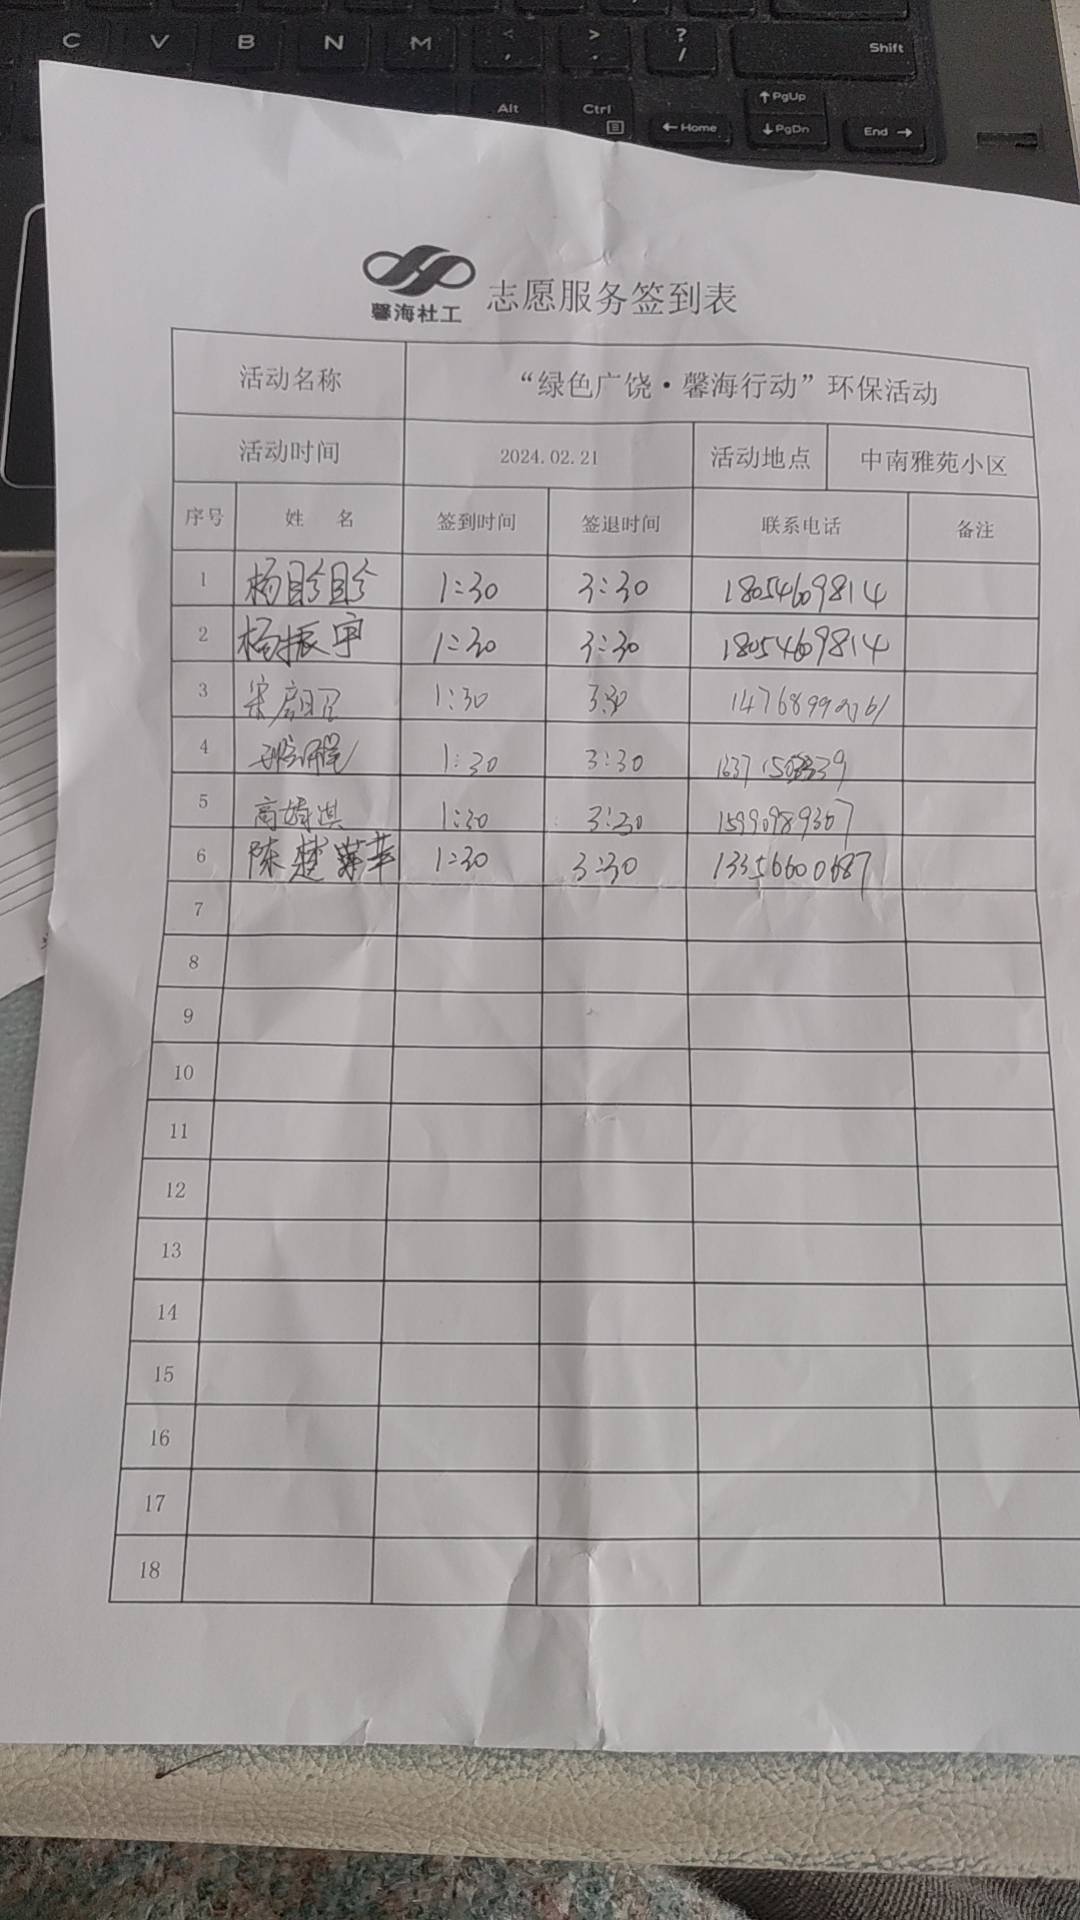 C V B N M < , > . ? / Shift
Alt Ctrl ↑PgUp
←Home ↓PgDn End→
馨海社工 志愿服务签到表
活动名称 “绿色广饶·馨海行动”环保活动
活动时间 2024.02.21 活动地点 中南雅苑小区
序号 姓 名 签到时间 签退时间 联系电话 备注
1 杨眕眕 1:30 3:30 18054609814
2 杨振宇 1:30 3:30 18054609814
3 1:30 3:30
4 1:30 3:30
5 高婧淇 1:30 3:30 15990989307
6 陈楚 1:30 3:30 13356600687
7
8
9
10
11
12
13
14
15
16
17
18